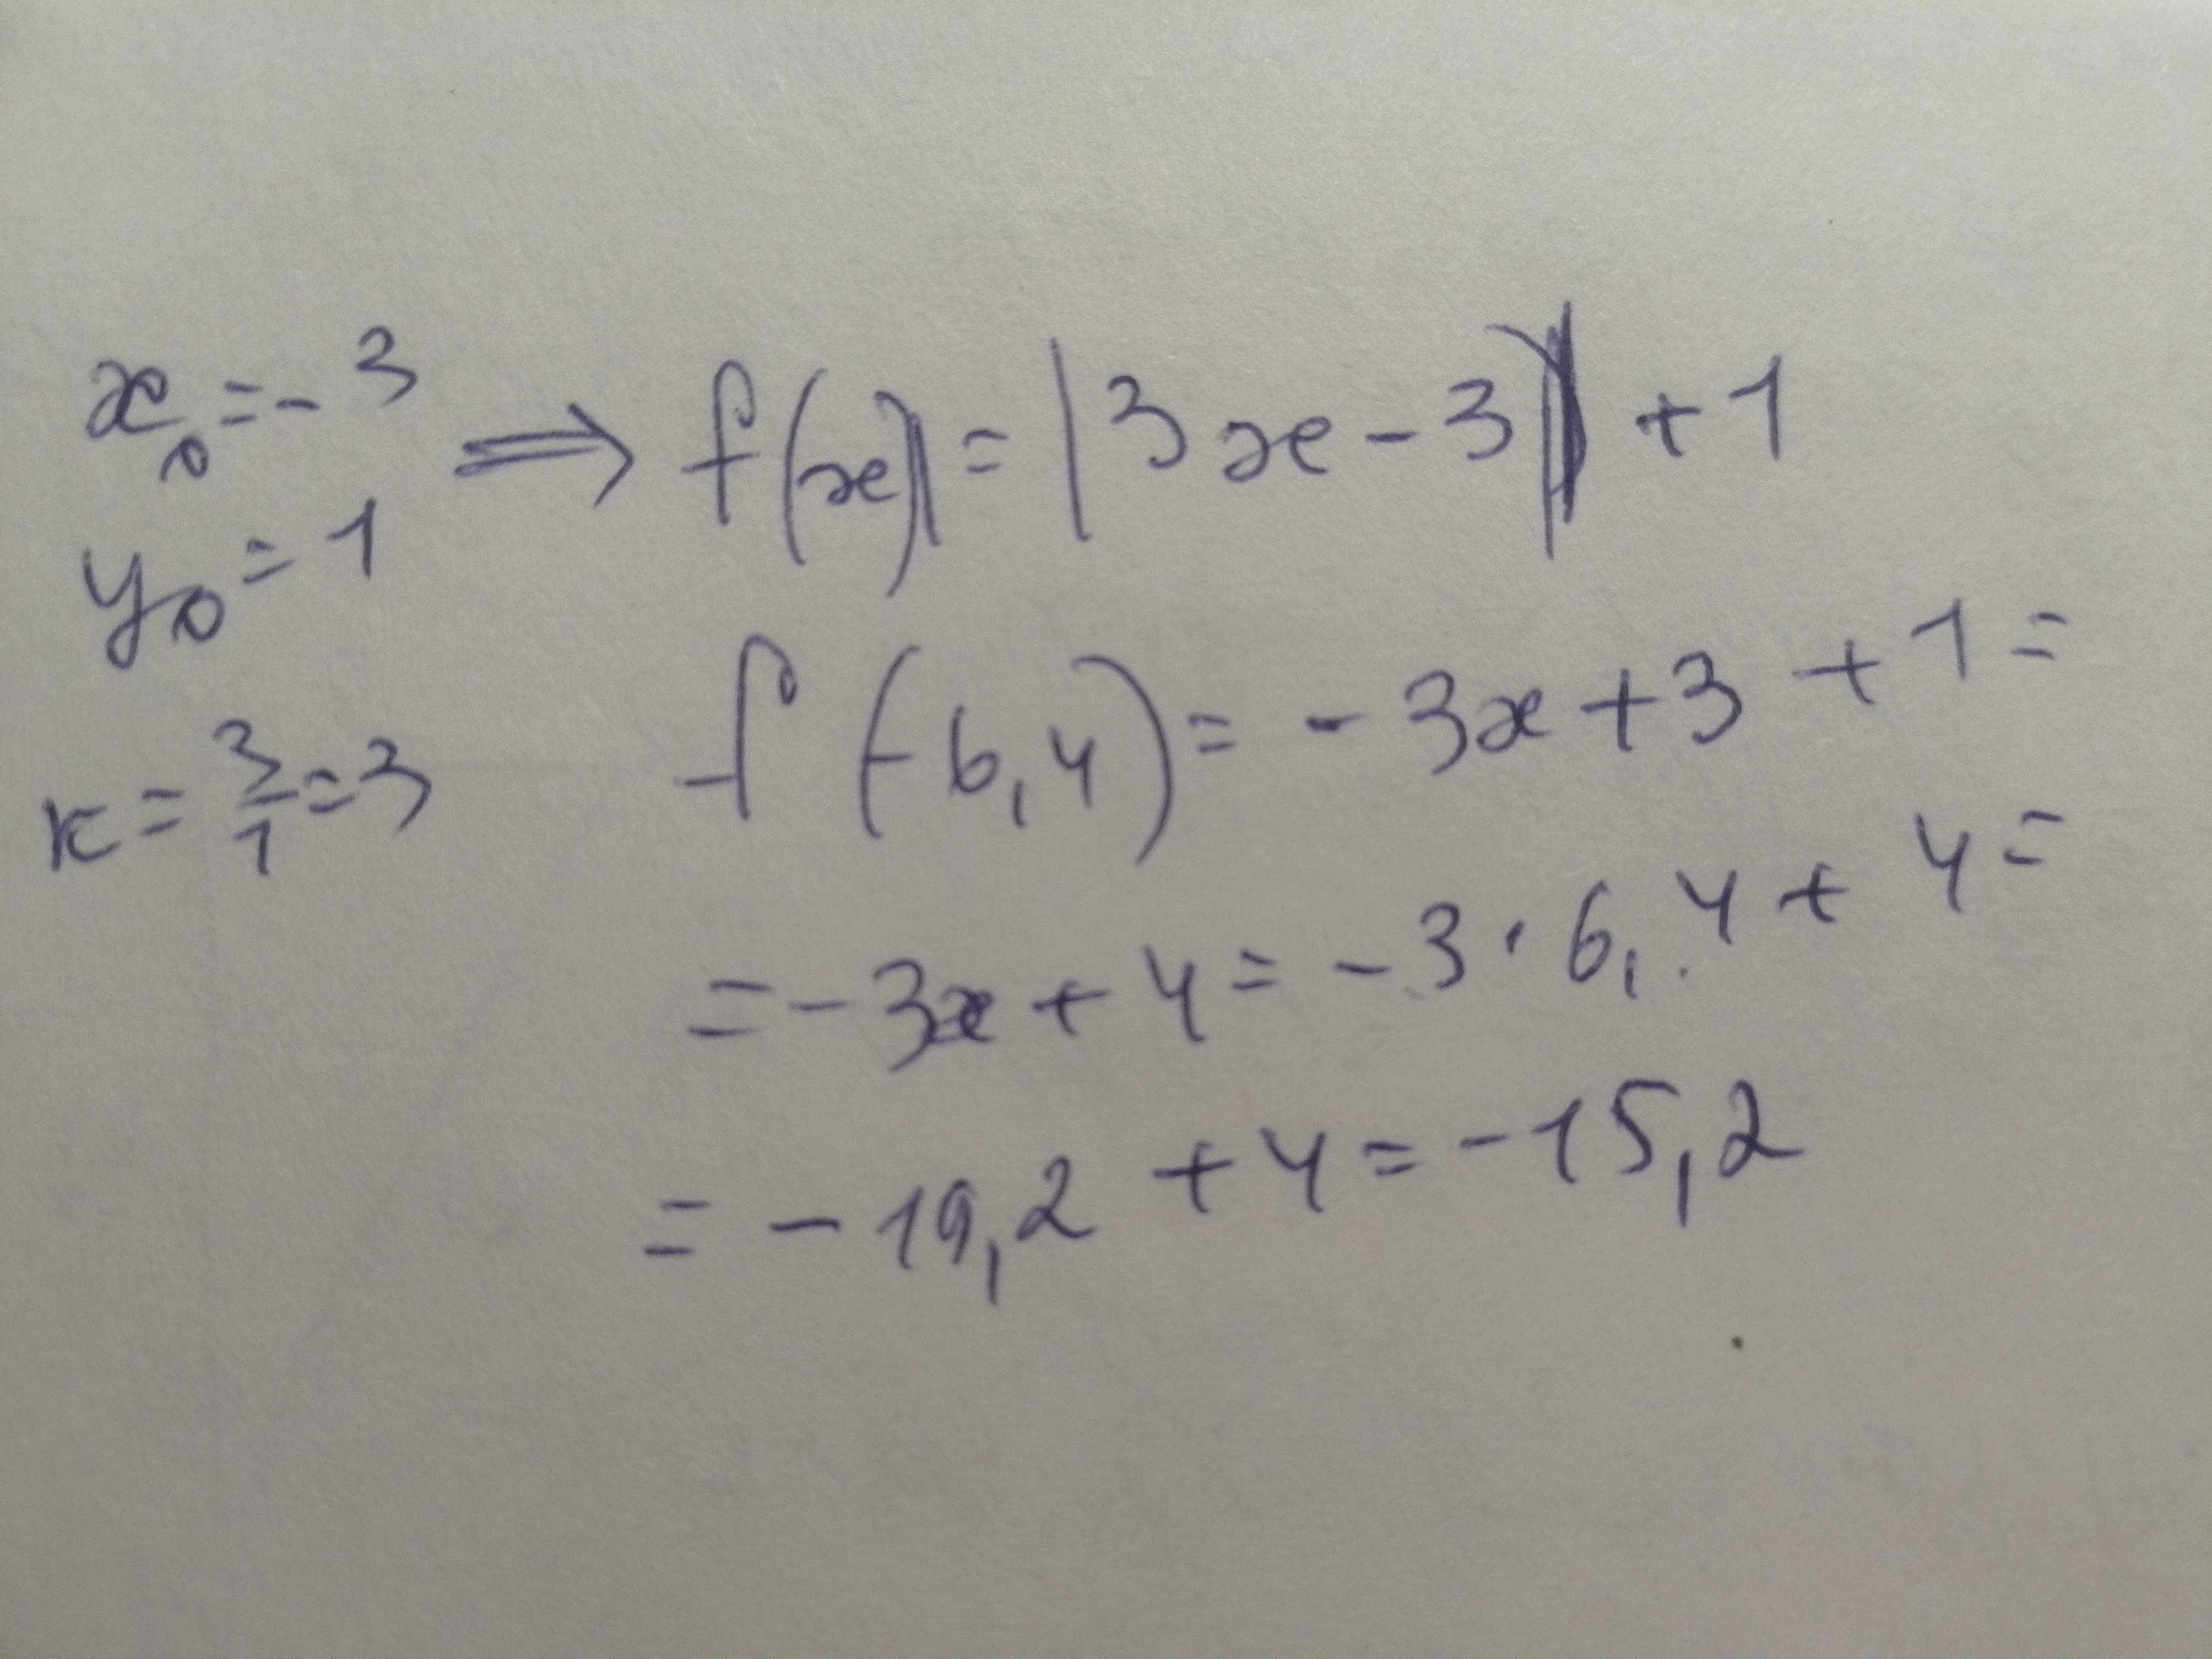 x₀ = -3
y₀ = 1
⟹ f(x) = |3x - 3| + 1
k = 3/1 = 3
f(-6,4) = -3x + 3 + 1 =
= -3x + 4 = -3 · 6,4 + 4 =
= -19,2 + 4 = -15,2